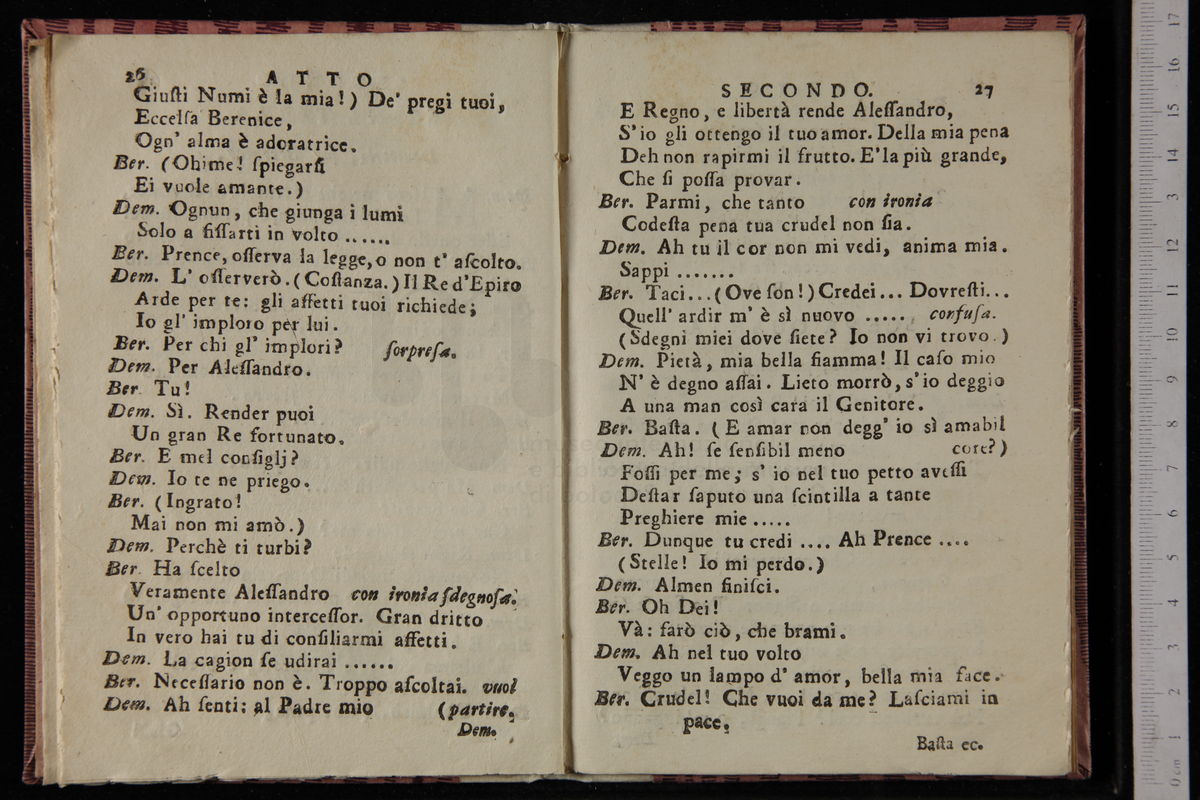 26 ATTO
Giuſti Numi è la mia!) De' pregi tuoi,
Eccelſa Berenice,
Ogn' alma è adoratrice.
Ber. (Ohime! ſpiegarſi
Ei vuole amante.)
Dem. Ognun, che giunga i lumi
Solo a fiſſarti in volto ......
Ber. Prence, oſſerva la legge, o non t' aſcolto.
Dem. L' oſſerverò. (Coſtanza.) Il Re d'Epiro
Arde per te: gli affetti tuoi richiede;
Io gl' imploro per lui.
Ber. Per chi gl' implori? ſorpreſa.
Dem. Per Aleſſandro.
Ber. Tu!
Dem. Sì. Render puoi
Un gran Re fortunato.
Ber. E mel conſiglj?
Dem. Io te ne priego.
Ber. (Ingrato!
Mai non mi amò.)
Dem. Perchè ti turbi?
Ber. Ha ſcelto
Veramente Aleſſandro con ironia ſdegnoſa.
Un' opportuno interceſſor. Gran dritto
In vero hai tu di conſiliarmi affetti.
Dem. La cagion ſe udirai ......
Ber. Neceſſario non è. Troppo aſcoltai. vuol
Dem. Ah ſenti: al Padre mio (partire.
Dem.
SECONDO. 27
E Regno, e libertà rende Aleſſandro,
S'io gli ottengo il tuo amor. Della mia pena
Deh non rapirmi il frutto. E'la più grande,
Che ſi poſſa provar.
Ber. Parmi, che tanto con ironia
Codeſta pena tua crudel non ſia.
Dem. Ah tu il cor non mi vedi, anima mia.
Sappi .......
Ber. Taci...(Ove ſon!) Credei... Dovreſti...
Quell' ardir m' è sì nuovo ..... confuſa.
(Sdegni miei dove ſiete? Io non vi trovo.)
Dem. Pietà, mia bella fiamma! Il caſo mio
N' è degno aſſai. Lieto morrò, s'io deggio
A una man così cara il Genitore.
Ber. Baſta. (E amar non degg' io sì amabil
Dem. Ah! ſe ſenſibil meno core?)
Foſſi per me; s' io nel tuo petto aveſſi
Deſtar ſaputo una ſcintilla a tante
Preghiere mie .....
Ber. Dunque tu credi .... Ah Prence ....
(Stelle! Io mi perdo.)
Dem. Almen finiſci.
Ber. Oh Dei!
Và: farò ciò, che brami.
Dem. Ah nel tuo volto
Veggo un lampo d' amor, bella mia face.
Ber. Crudel! Che vuoi da me? Laſciami in
pace.
Baſta ec.